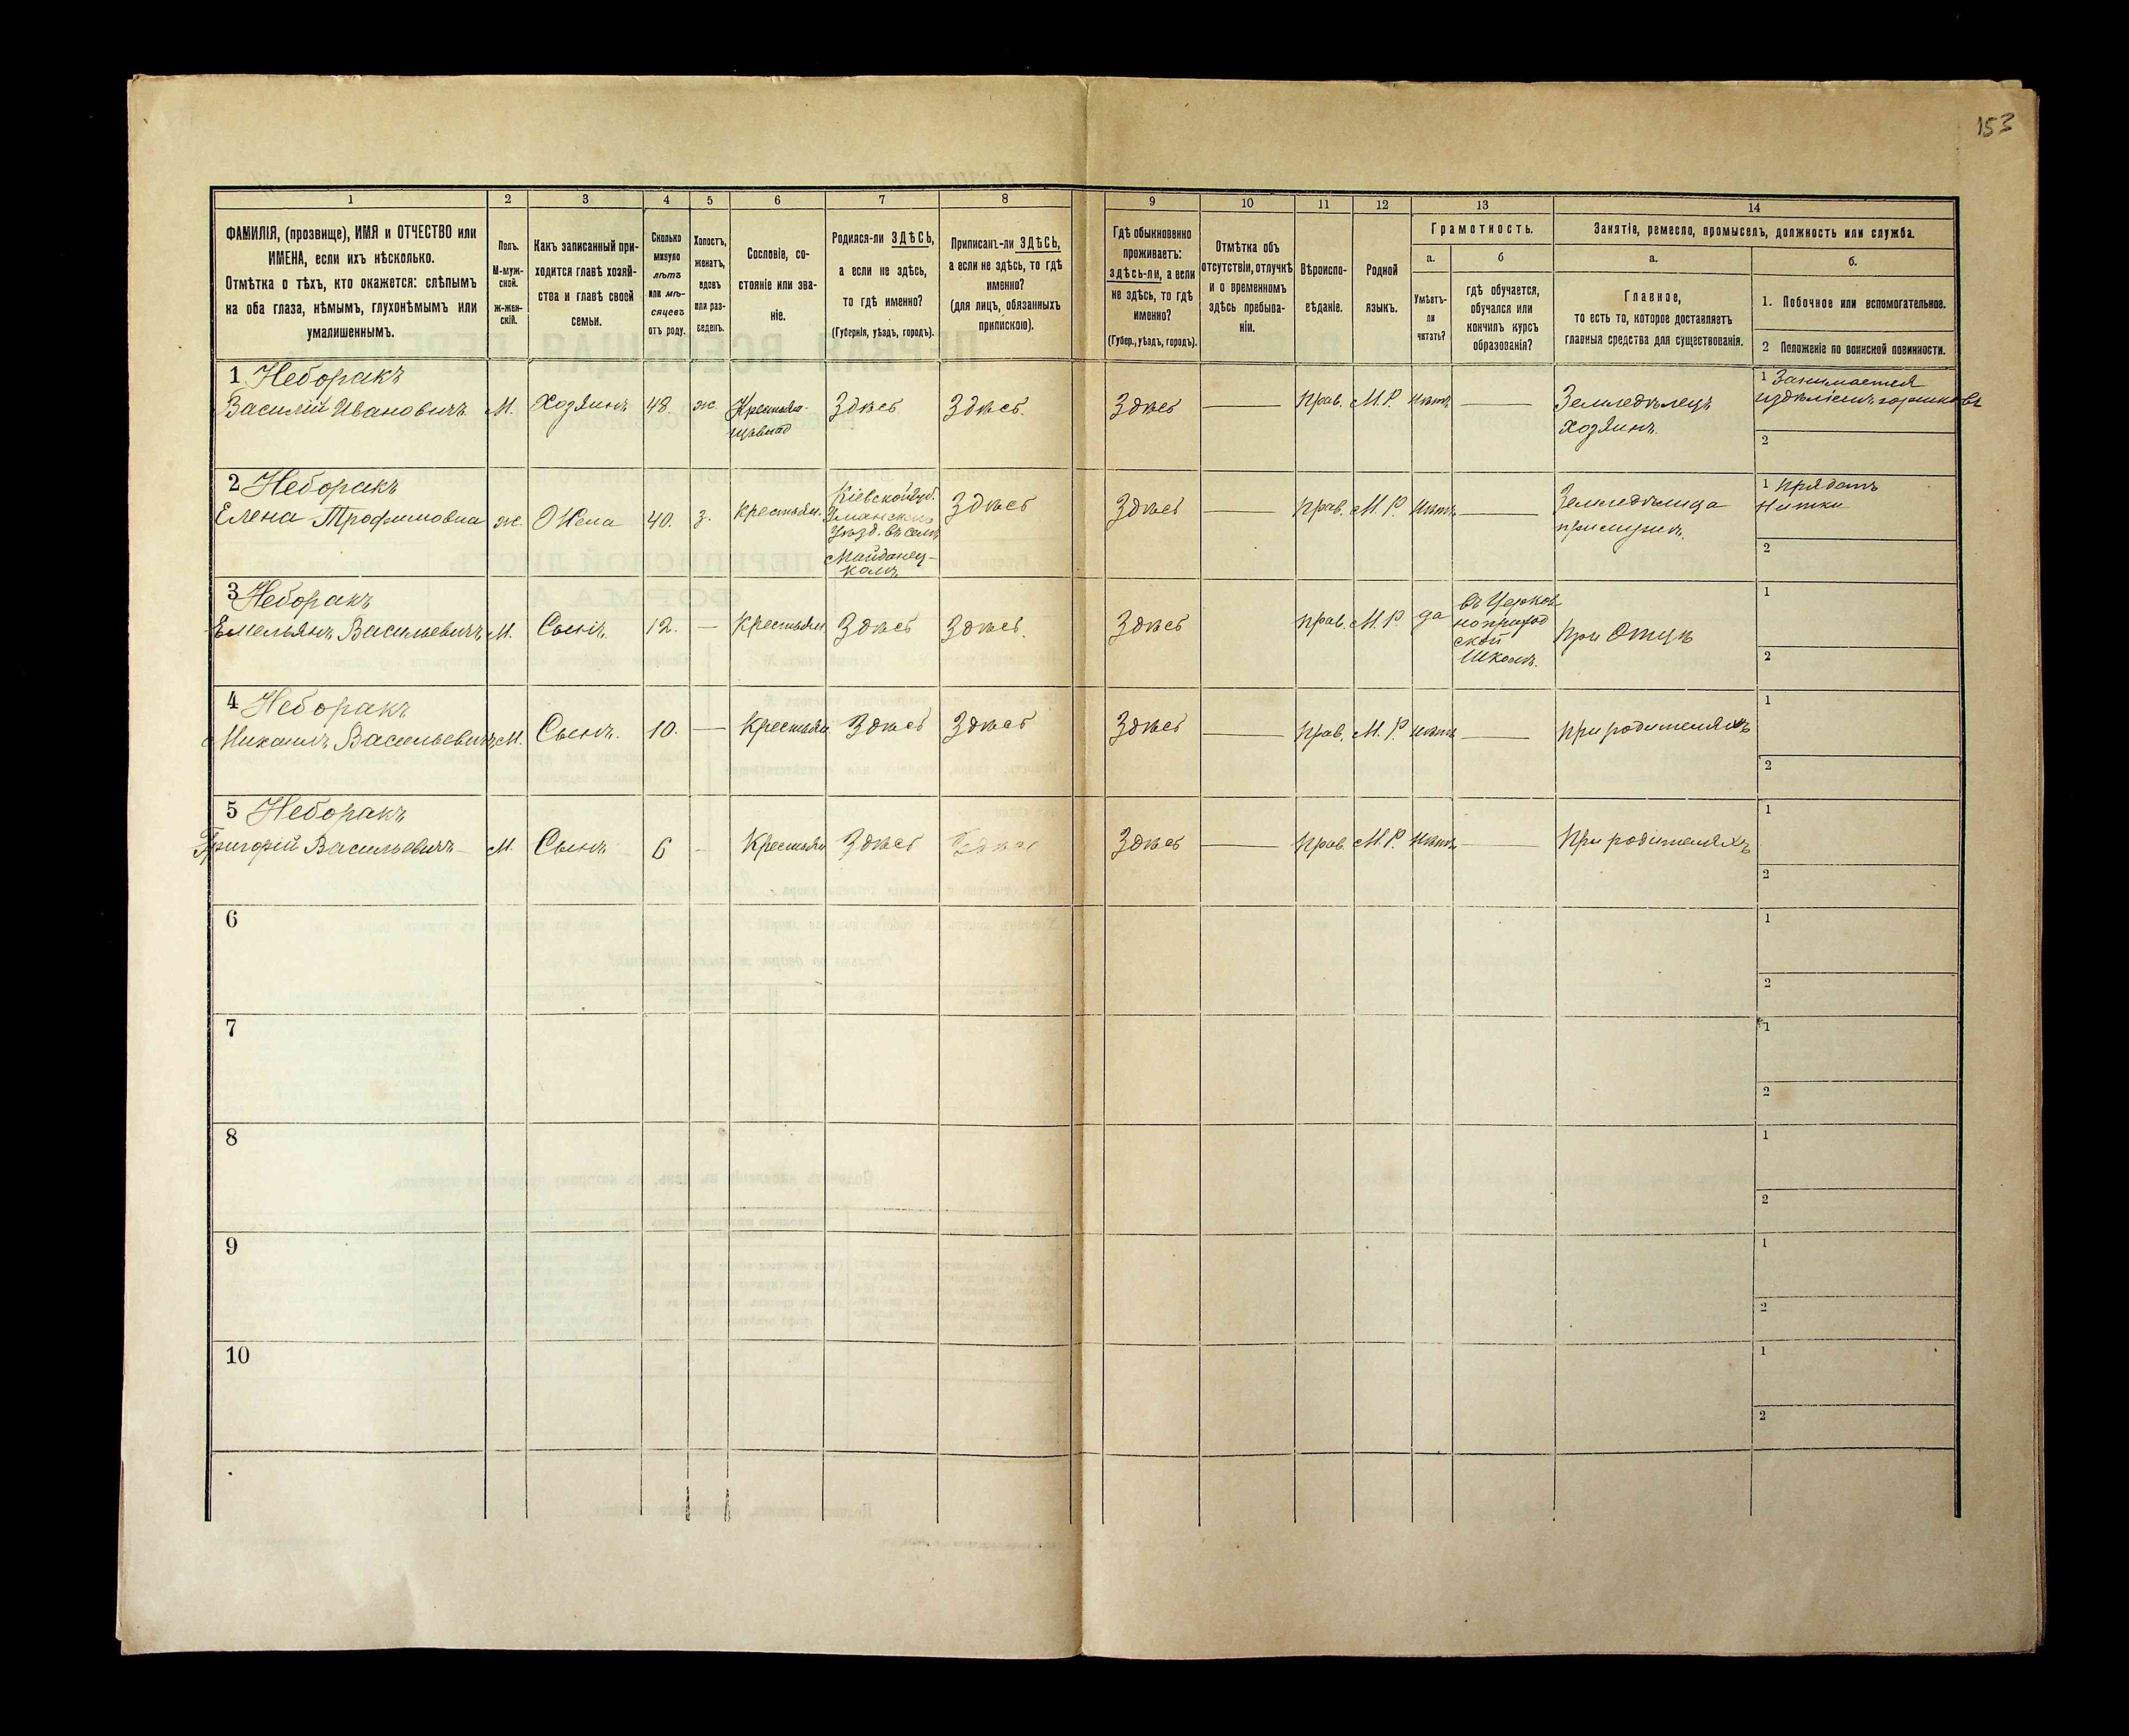 153
1
2
3
4
5
6
7
8
9
10
11
12
13
14
ФАМИЛІЯ, (прозвище), ИМЯ и ОТЧЕСТВО или
ИМЕНА, если ихъ нѣсколько.
Отмѣтка о тѣхъ, кто окажется: слѣпымъ
на оба глаза, нѣмымъ, глухонѣмымъ или
умалишеннымъ.
Полъ.
М-муж-
ской.
ж-жен-
скій.
Какъ записанный при-
ходится главѣ хозяй-
ства и главѣ своей
семьи.
Сколько
минуло
лѣтъ
или мѣ-
сяцевъ
отъ роду.
Холостъ,
женатъ,
вдовъ
или раз-
веденъ.
Сословіе, со-
стояніе или зва-
ніе.
Родился-ли ЗДѢСЬ,
а если не здѣсь,
то гдѣ именно?
(Губернія, уѣздъ, городъ).
Приписанъ-ли ЗДѢСЬ,
а если не здѣсь, то гдѣ
именно?
(для лицъ, обязанныхъ
припискою).
Гдѣ обыкновенно
проживаетъ:
здѣсь-ли, а если
не здѣсь, то гдѣ
именно?
(Губер., уѣздъ, городъ).
Отмѣтка объ
отсутствіи, отлучкѣ
и о временномъ
здѣсь пребыва-
ніи.
Вѣроиспо-
вѣданіе.
Родной
языкъ.
Грамотность.
а.
Умѣетъ-
ли
читать?
б
гдѣ обучается,
обучался или
кончилъ курсъ
образованія?
Занятіе, ремесло, промыселъ, должность или служба.
а.
Главное,
то есть то, которое доставляетъ
главныя средства для существованія.
б.
1. Побочное или вспомогательное.
2 Положеніе по воинской повинности.
1 Неборакъ
Василій Ивановичъ
М.
Хозяинъ
48.
ж.
Здѣсь
Здѣсь.
Здѣсь
Прав.
М.Р.
Нѣтъ
Земледѣлецъ
Хозяинъ.
1 Занимается
издѣліемъ горшковъ
2
2 Неборакъ
Елена Трофимовна
ж.
Жена
40.
з.
Крестьян.
Кіевской Губ.
Уманскаго
Уѣзд. въ селѣ
Майданец-
комъ
Здѣсь
Здѣсь
Прав.
М.Р.
Нѣтъ
Земледѣлица
при мужѣ.
1 Прядетъ
Нитки
2
3 Неборакъ
Емельянъ Васильевичъ
М.
Сынъ.
12.
Крестьян
Здѣсь
Здѣсь.
Здѣсь
Прав.
М.Р
да
Въ Церков-
ноприход
ской
Школѣ.
При Отцѣ
1
2
4 Неборакъ
Михаилъ Васильевичъ
М.
Сынъ.
10.
Крестьян
Здѣсь
Здѣсь
Здѣсь
Прав.
М.Р.
Нѣтъ
При родителяхъ
1
2
5 Неборакъ
Григорій Васильевичъ
М.
Сынъ
6
Крестьян
Здѣсь
Здѣсь
Здѣсь
Прав.
М.Р.
Нѣтъ
При родителяхъ
1
2
6
1
2
7
1
2
8
1
2
9
1
2
10
1
2